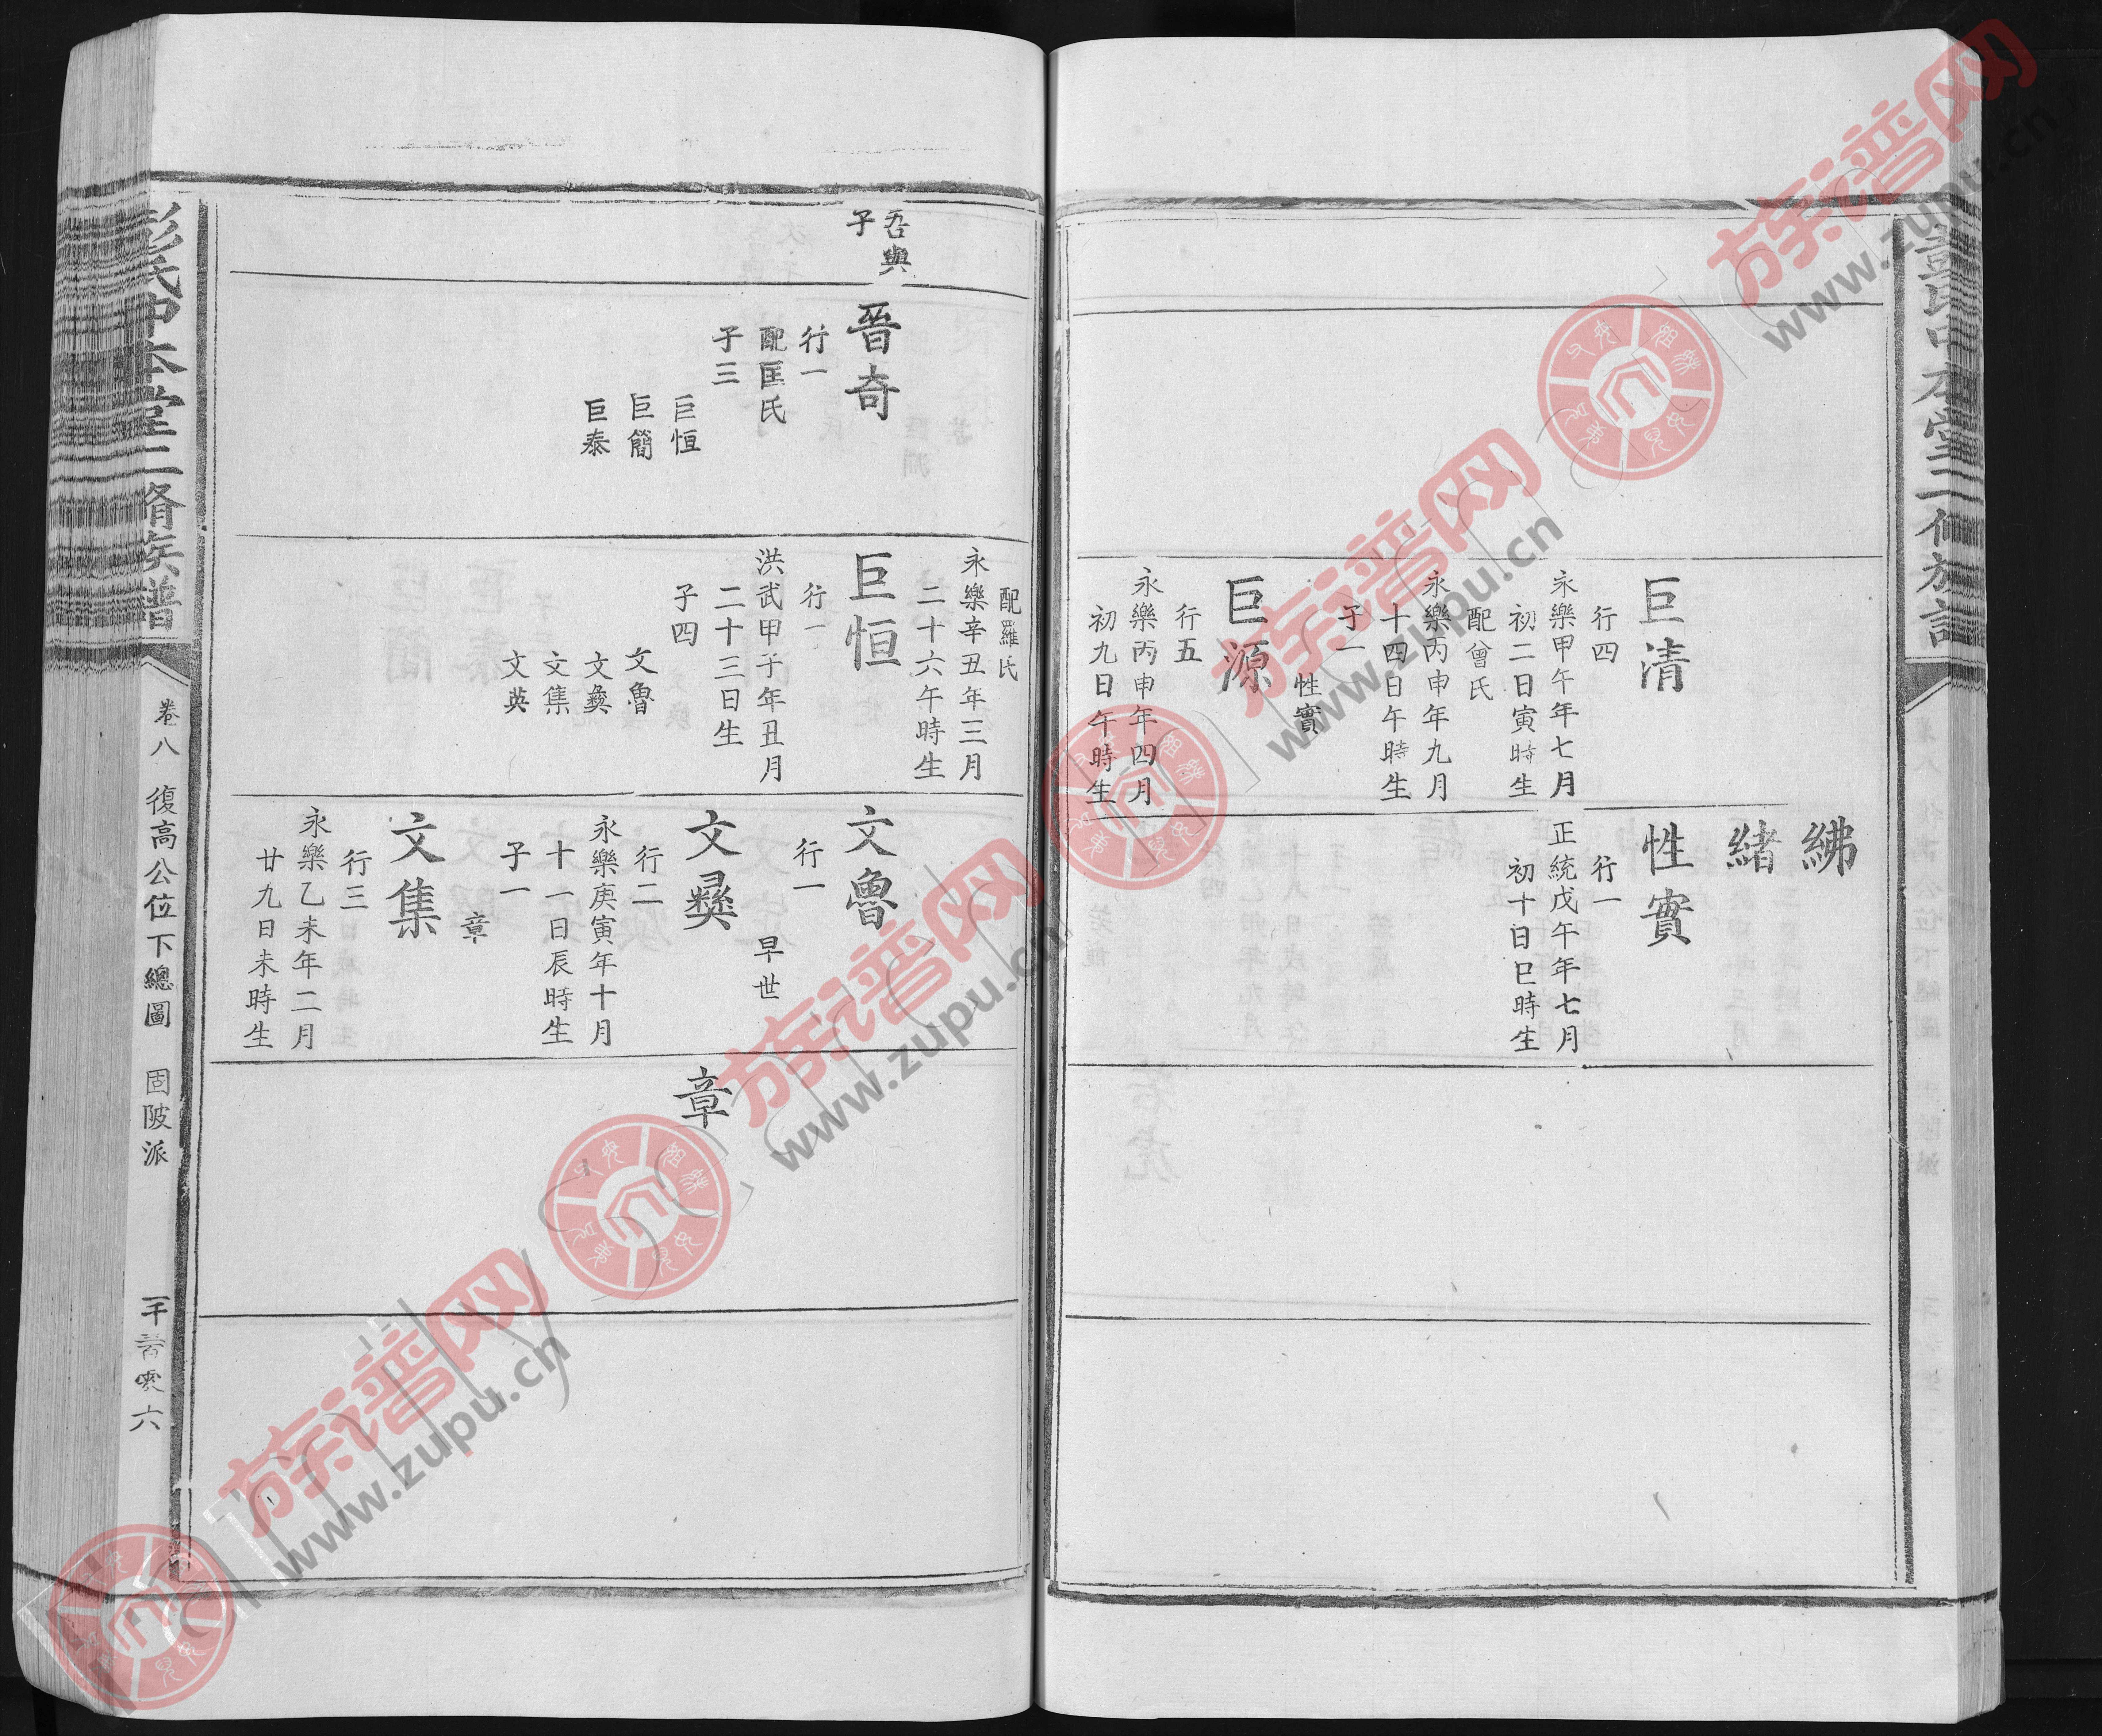 紼
緒
巨清
行四
永樂甲午年七月
初二日寅時生
配曾氏
永樂丙申年九月
十四日午時生
子一
性實
巨源
行五
永樂丙申年四月
初九日午時生
性實
行一
正統戊午年七月
初十日巳時生
吾與
子
晉奇
行一
配匡氏
子三
巨恒
巨簡
巨泰
配羅氏
永樂辛丑年三月
二十六午時生
巨恒
行一
洪武甲子年丑月
二十三日生
子四
文魯
文彝
文集
文英
文魯
行一
早世
文彝
行二
永樂庚寅年十月
十一日辰時生
子一
章
文集
行三
永樂乙未年二月
廿九日未時生
章
彭氏中本堂三脩族譜
卷八
復高公位下總圖
固陂派
族谱网
www.zupu.cn
族谱网
www.zupu.cn
族谱网
www.zupu.cn
族谱网
www.zupu.cn